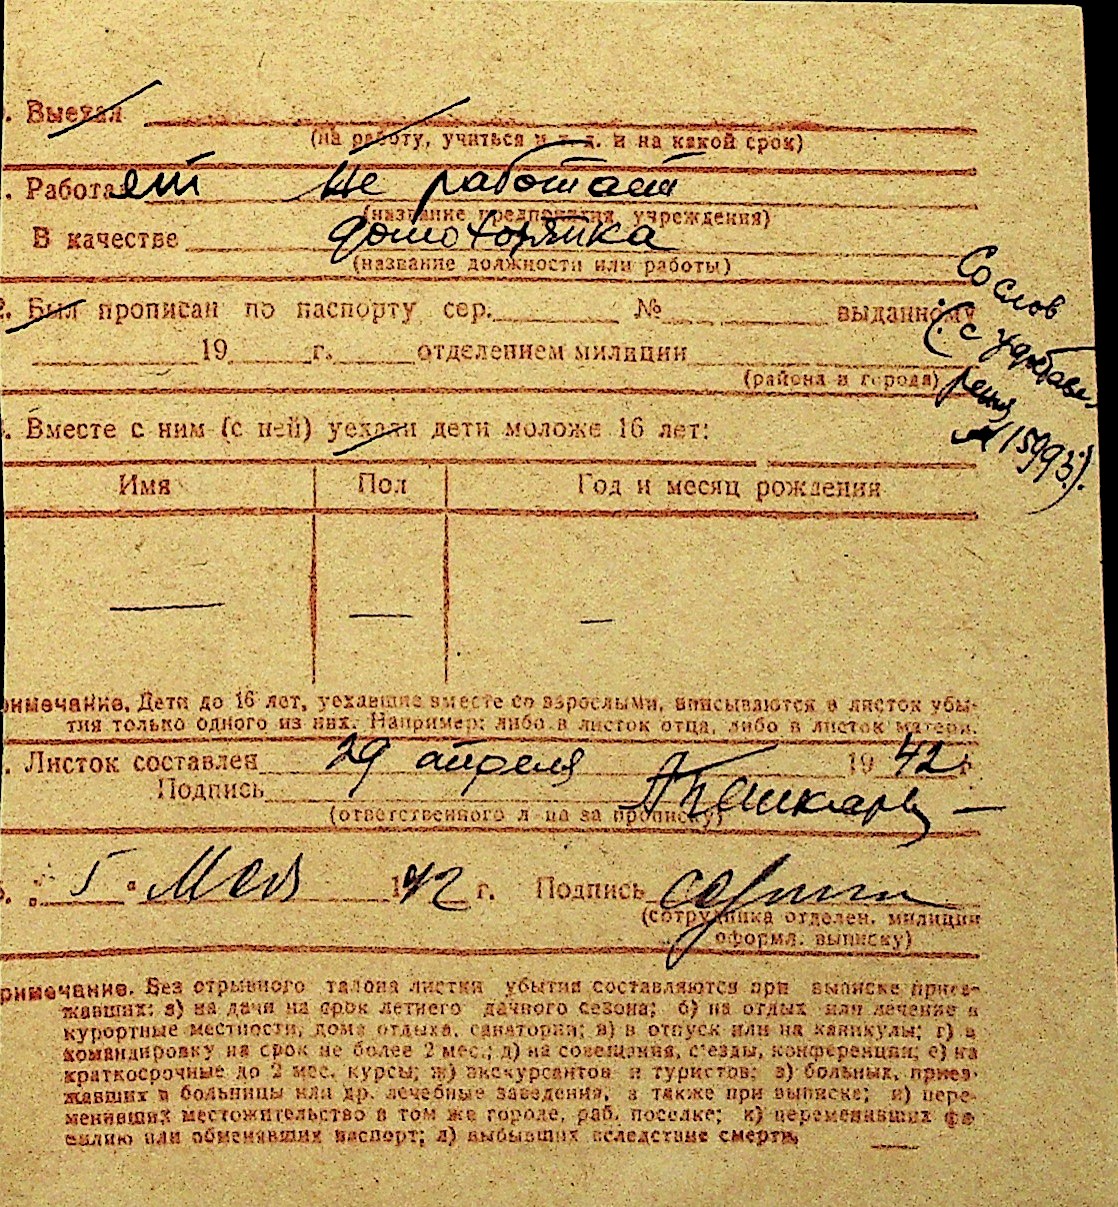 . Выехал
(на работу, учиться и т. д. и на какой срок)
. Работает не работает
(название предприятия, учреждения)
В качестве домохозяйка
(название должности или работы)
2. Был прописан по паспорту сер. № выданному
19 г. отделением милиции
(района и города)
Со слов
(с
№ 15993).
. Вместе с ним (с ней) уехали дети моложе 16 лет:
Имя Пол Год и месяц рождения
— — —
римечание. Дети до 16 лет, уехавшие вместе со взрослыми, вписываются в листок убы-
тия только одного из них. Например: либо в листок отца, либо в листок матери.
. Листок составлен 29 апреля 1942 г.
Подпись
(ответственного л-ца за прописку)
5. „ 5 " мая 1942 г. Подпись
(сотрудника отделен. милиции
оформл. выписку)
римечание. Без отрывного талона листки убытия составляются при выписке приез-
жавших: а) на дачи на срок летнего дачного сезона; б) на отдых или лечение в
курортные местности, дома отдыха, санатории; в) в отпуск или на каникулы; г) в
командировку на срок не более 2 мес.; д) на совещания, с'езды, конференции; е) на
краткосрочные до 2 мес. курсы; ж) экскурсантов и туристов; з) больных, приез-
жавших в больницы или др. лечебные заведения, а также при выписке; и) пере-
менивших местожительство в том же городе, раб. поселке; к) переменивших фа-
милию или обменявших паспорт; л) выбывших вследствие смерти.